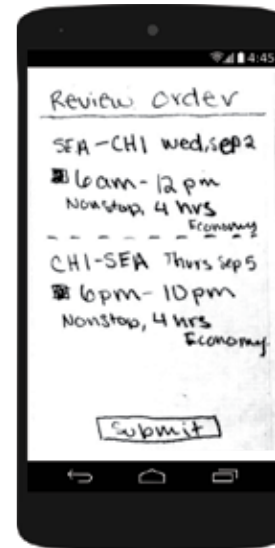 4:45
Review order
SEA-CHI Wed, Sep 2
6am-12pm
Nonstop, 4 hrs
Economy
CHI-SEA Thurs Sep 5
6pm-10pm
Nonstop, 4 hrs
Economy
Submit